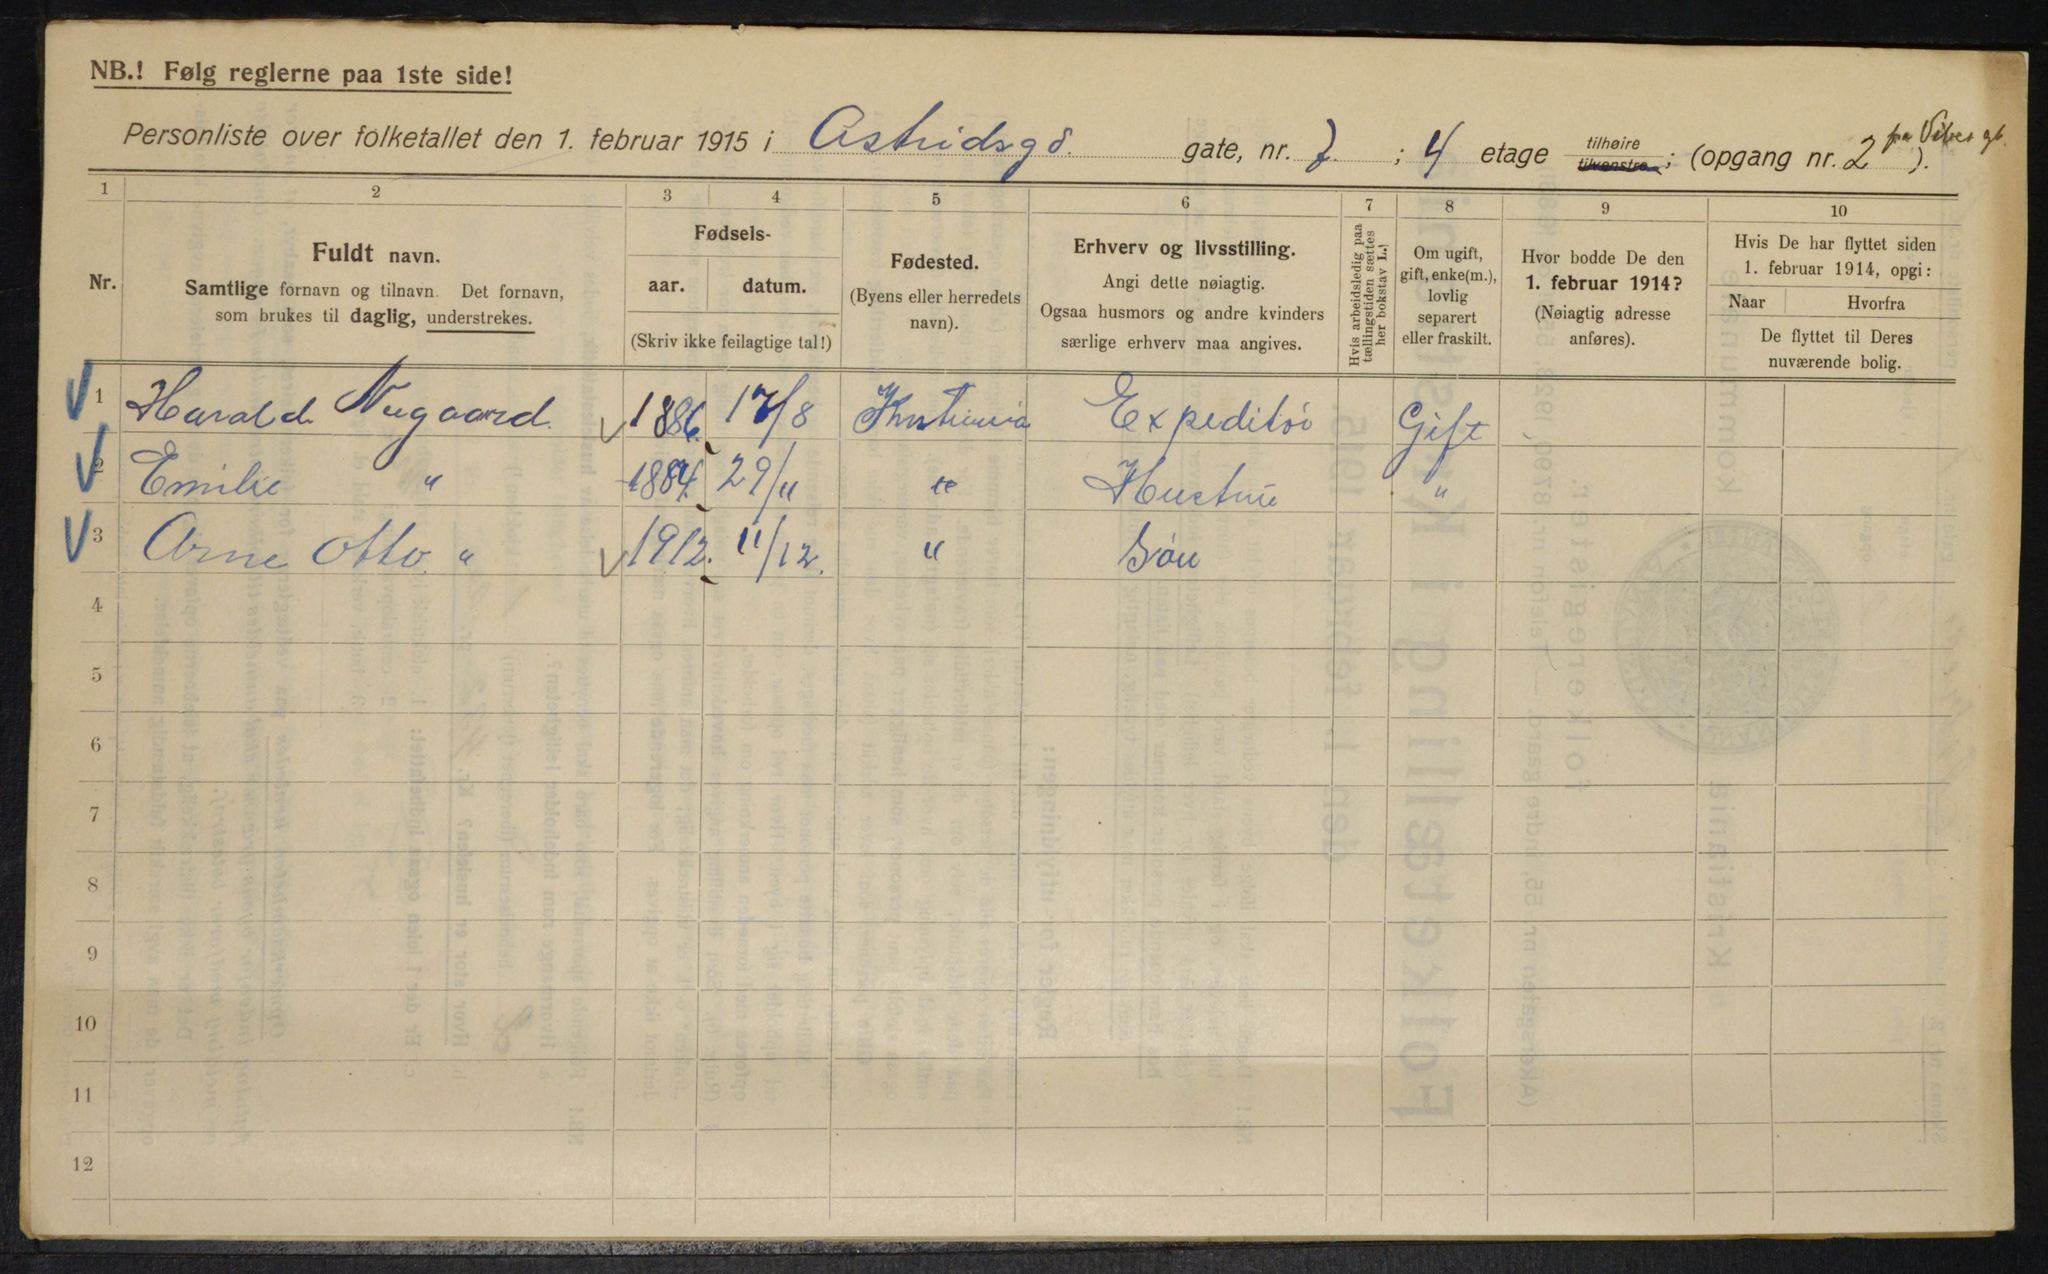 NB.! Følg reglerne paa 1ste side!
Personliste over folketallet den 1. februar 1915 i Astridsgd. gate, nr. 7 ; 4 etage tilhøire tilvenstre ; (opgang nr. 2 ).
1 2 3 4 5 6 7 8 9 10
Nr.
Fuldt navn.
Samtlige fornavn og tilnavn. Det fornavn,
som brukes til daglig, understrekes.
Fødsels-
aar. datum.
(Skriv ikke feilagtige tal!)
Fødested.
(Byens eller herredets
navn).
Erhverv og livsstilling.
Angi dette nøiagtig.
Ogsaa husmors og andre kvinders
særlige erhverv maa angives.
Hvis arbeidsledig paa
tællingstiden sættes
her bokstav L.!
Om ugift,
gift, enke(m.),
lovlig
separert
eller fraskilt.
Hvor bodde De den
1. februar 1914?
(Nøiagtig adresse
anføres).
Hvis De har flyttet siden
1. februar 1914, opgi:
Naar Hvorfra
De flyttet til Deres
nuværende bolig.
1 Harald Nygaard. 1886. 17/8 Kristiania Expeditør Gift
2 Emilie " 1884. 29/11 " Hustru "
3 Arne Otto. " 1912. 11/12. " Søn
4
5
6
7
8
9
10
11
12